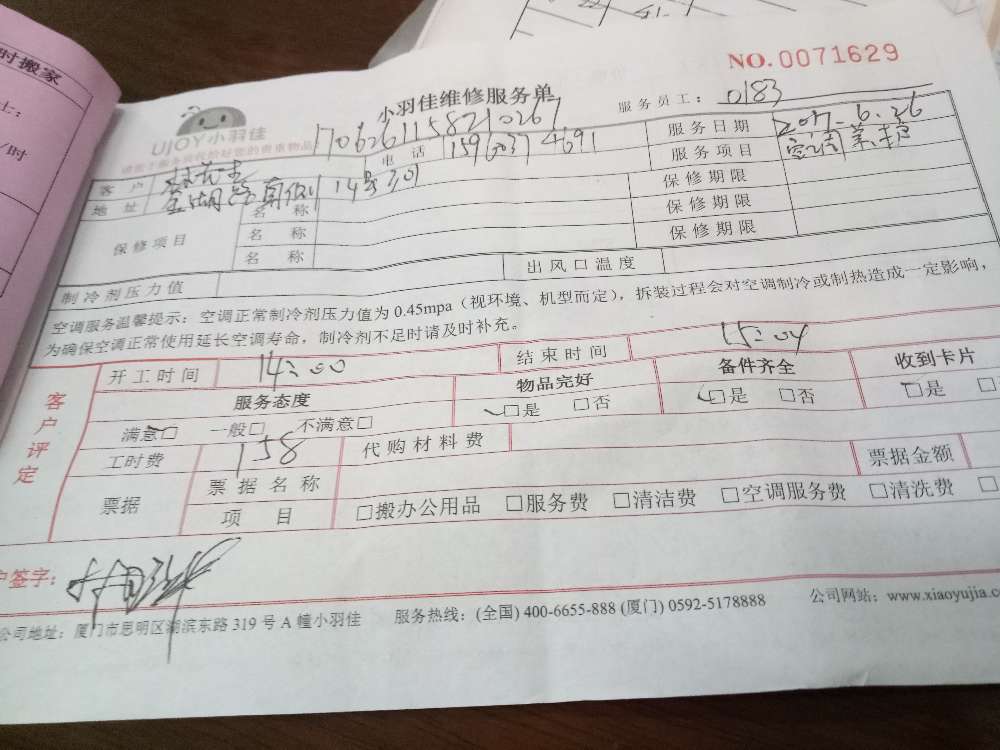 时搬家
士：
/时
51.
NO.0071629
小羽佳维修服务单
服务员工： 0183
UJOY小羽佳
170626115821026
客户
电话 15960374691
服务日期 2017.6.26
地址 14号301
服务项目 空调
保修项目
名称
保修期限
名称
保修期限
名称
保修期限
制冷剂压力值
出风口温度
空调服务温馨提示：空调正常制冷剂压力值为 0.45mpa（视环境、机型而定），拆装过程会对空调制冷或制热造成一定影响，
为确保空调正常使用延长空调寿命，制冷剂不足时请及时补充。
客户评定
开工时间 14:00
结束时间 15:04
服务态度
物品完好
备件齐全
收到卡片
满意□ 一般□ 不满意□
□是 □否
□是 □否
□是 □
工时费 158
代购材料费
票据
票据名称
票据金额
项目
□搬办公用品 □服务费 □清洁费 □空调服务费 □清洗费 □
户签字：
公司地址：厦门市思明区湖滨东路 319 号 A 幢小羽佳 服务热线：(全国) 400-6655-888 (厦门) 0592-5178888 公司网站：www.xiaoyujia.c